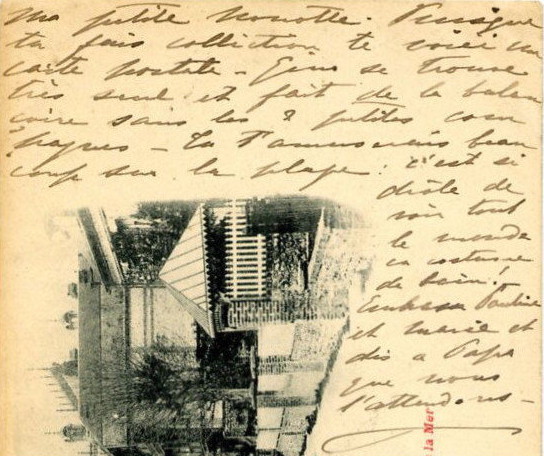 Ma petite Nonotte. Puisque
tu fais collection te voici un
carte postale - Ejus se trouve
très seul et fait de la balan
coire sans les 2 petites com
pagnes - Tu t'amuserais beau
coup sur la plage. C'est si
drôle de
voir tout
le monde
en costume
de bain!
Embrasse Pauline
et Marie et
dis a Papa
que nous
l'attendons -
la Mer